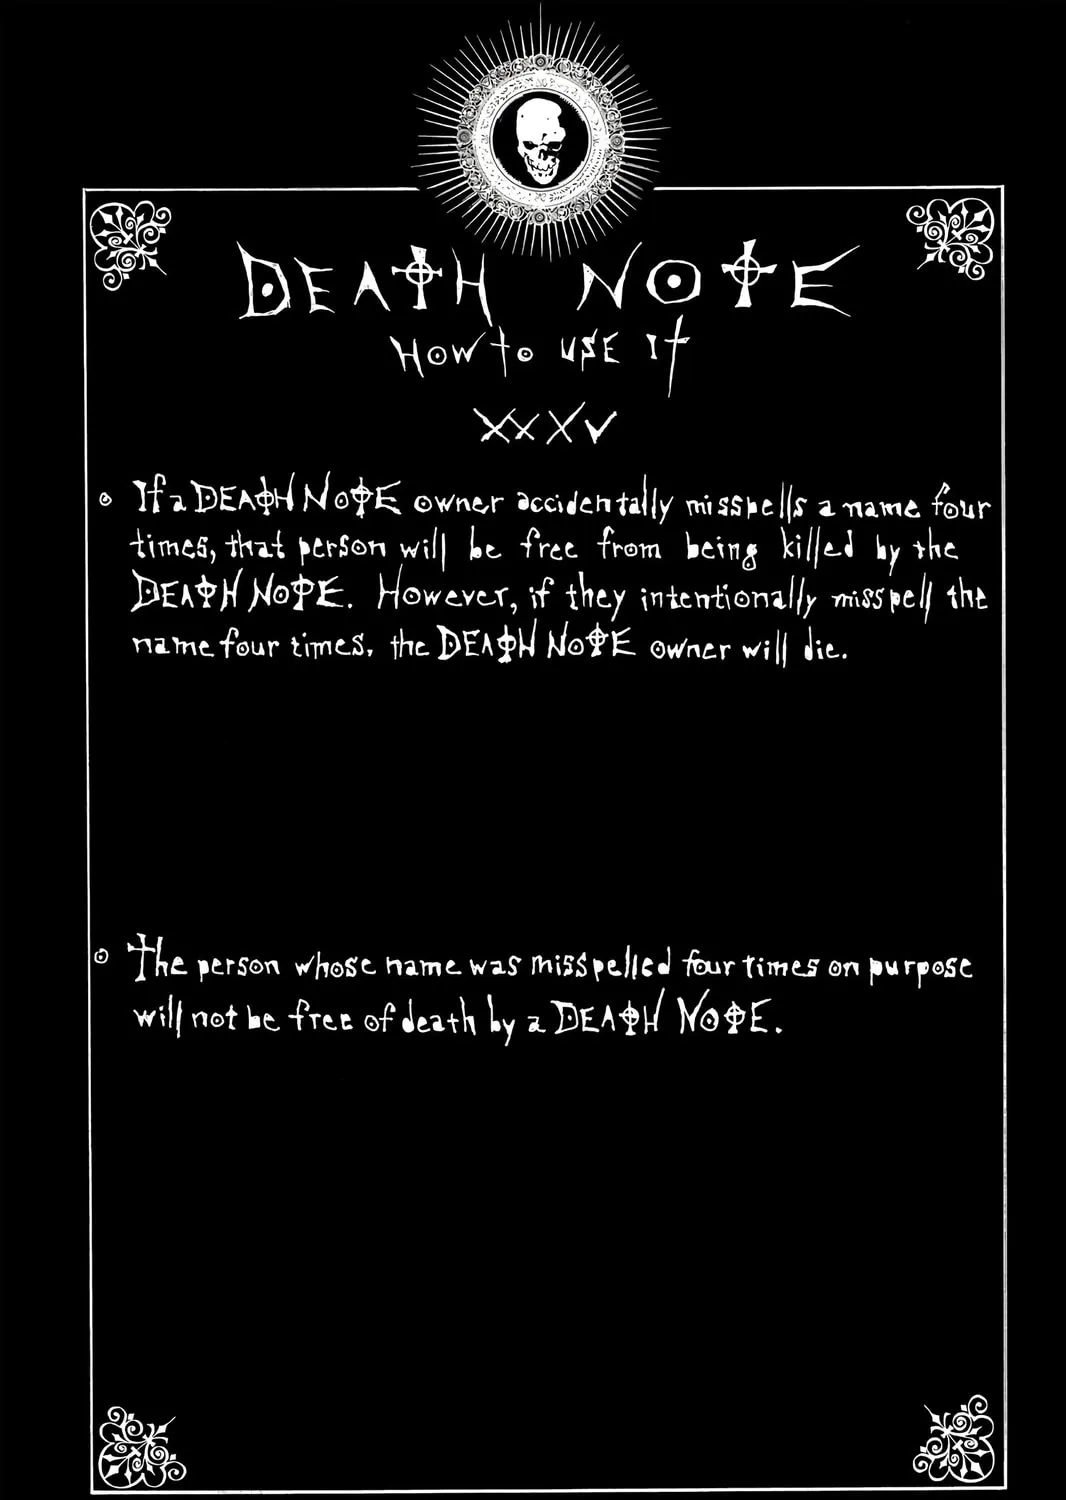 DEATH NOTE
HOW to USE It
XXXV
If a DEATH NOTE owner accidentally misspells a name four
times, that person will be free from being killed by the
DEATH NOTE. However, if they intentionally misspell the
name four times, the DEATH NOTE owner will die.
The person whose name was misspelled four times on purpose
will not be free of death by a DEATH NOTE.